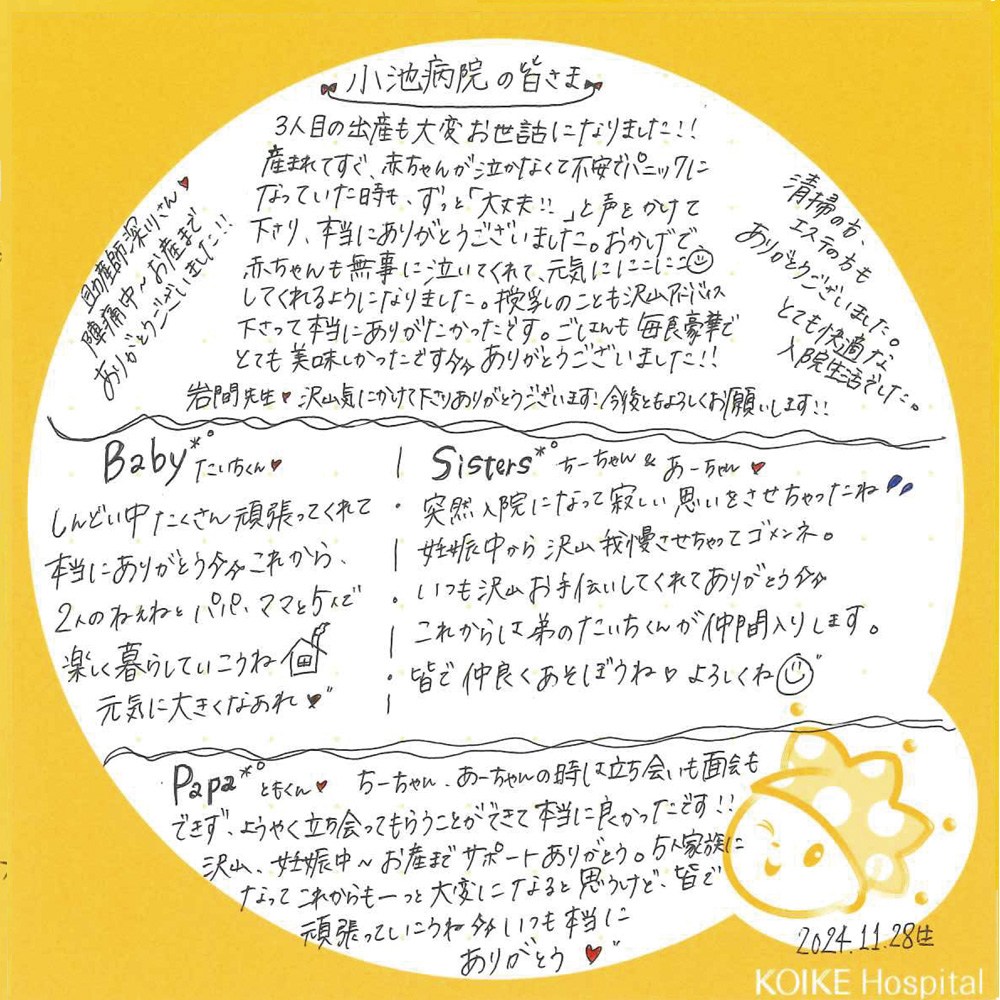 小池病院の皆さま
3人目の出産も大変お世話になりました!!
産まれてすぐ、赤ちゃんが泣かなくて不安でパニックに
なっていた時も、ずっと「大丈夫!!」と声をかけて
下さり、本当にありがとうございました。おかげで
赤ちゃんも無事に泣いてくれて、元気ににこにこ
してくれるようになりました。授乳のことも沢山アドバイス
下さって本当にありがたかったです。ごはんも毎食豪華で
とても美味しかったです♪♪ありがとうございました!!
岩間先生♥沢山気にかけて下さりありがとうございます!今後ともよろしくお願いします!!
助産師深川さん♥
陣痛中~お産まで
ありがとうございました!!
清掃の方、
エステの方も
ありがとうございました。
とても快適な
入院生活でした。
Baby*° たいちくん♥
しんどい中たくさん頑張ってくれて
本当にありがとう♪♪これから、
2人のねぇねとパパ、ママと5人で
楽しく暮らしていこうね
元気に大きくなあれ♥"
Sisters*° ちーちゃん & あーちゃん♥
突然入院になって寂しい思いをさせちゃったね
妊娠中から沢山我慢させちゃってゴメンネ。
いつも沢山お手伝いしてくれてありがとう♪♪
これからは弟のたいちくんが仲間入りします。
皆で仲良くあそぼうね♡よろしくね"
Papa*° ともくん♥ ちーちゃん、あーちゃんの時は立ち会いも面会も
できず、ようやく立ち会ってもらうことができて本当に良かったです!!
沢山、妊娠中~お産までサポートありがとう。5人家族に
なってこれからもーっと大変になると思うけど、皆で
頑張っていこうね♪♪いつも本当に
ありがとう♥"
2024.11.28生
KOIKE Hospital